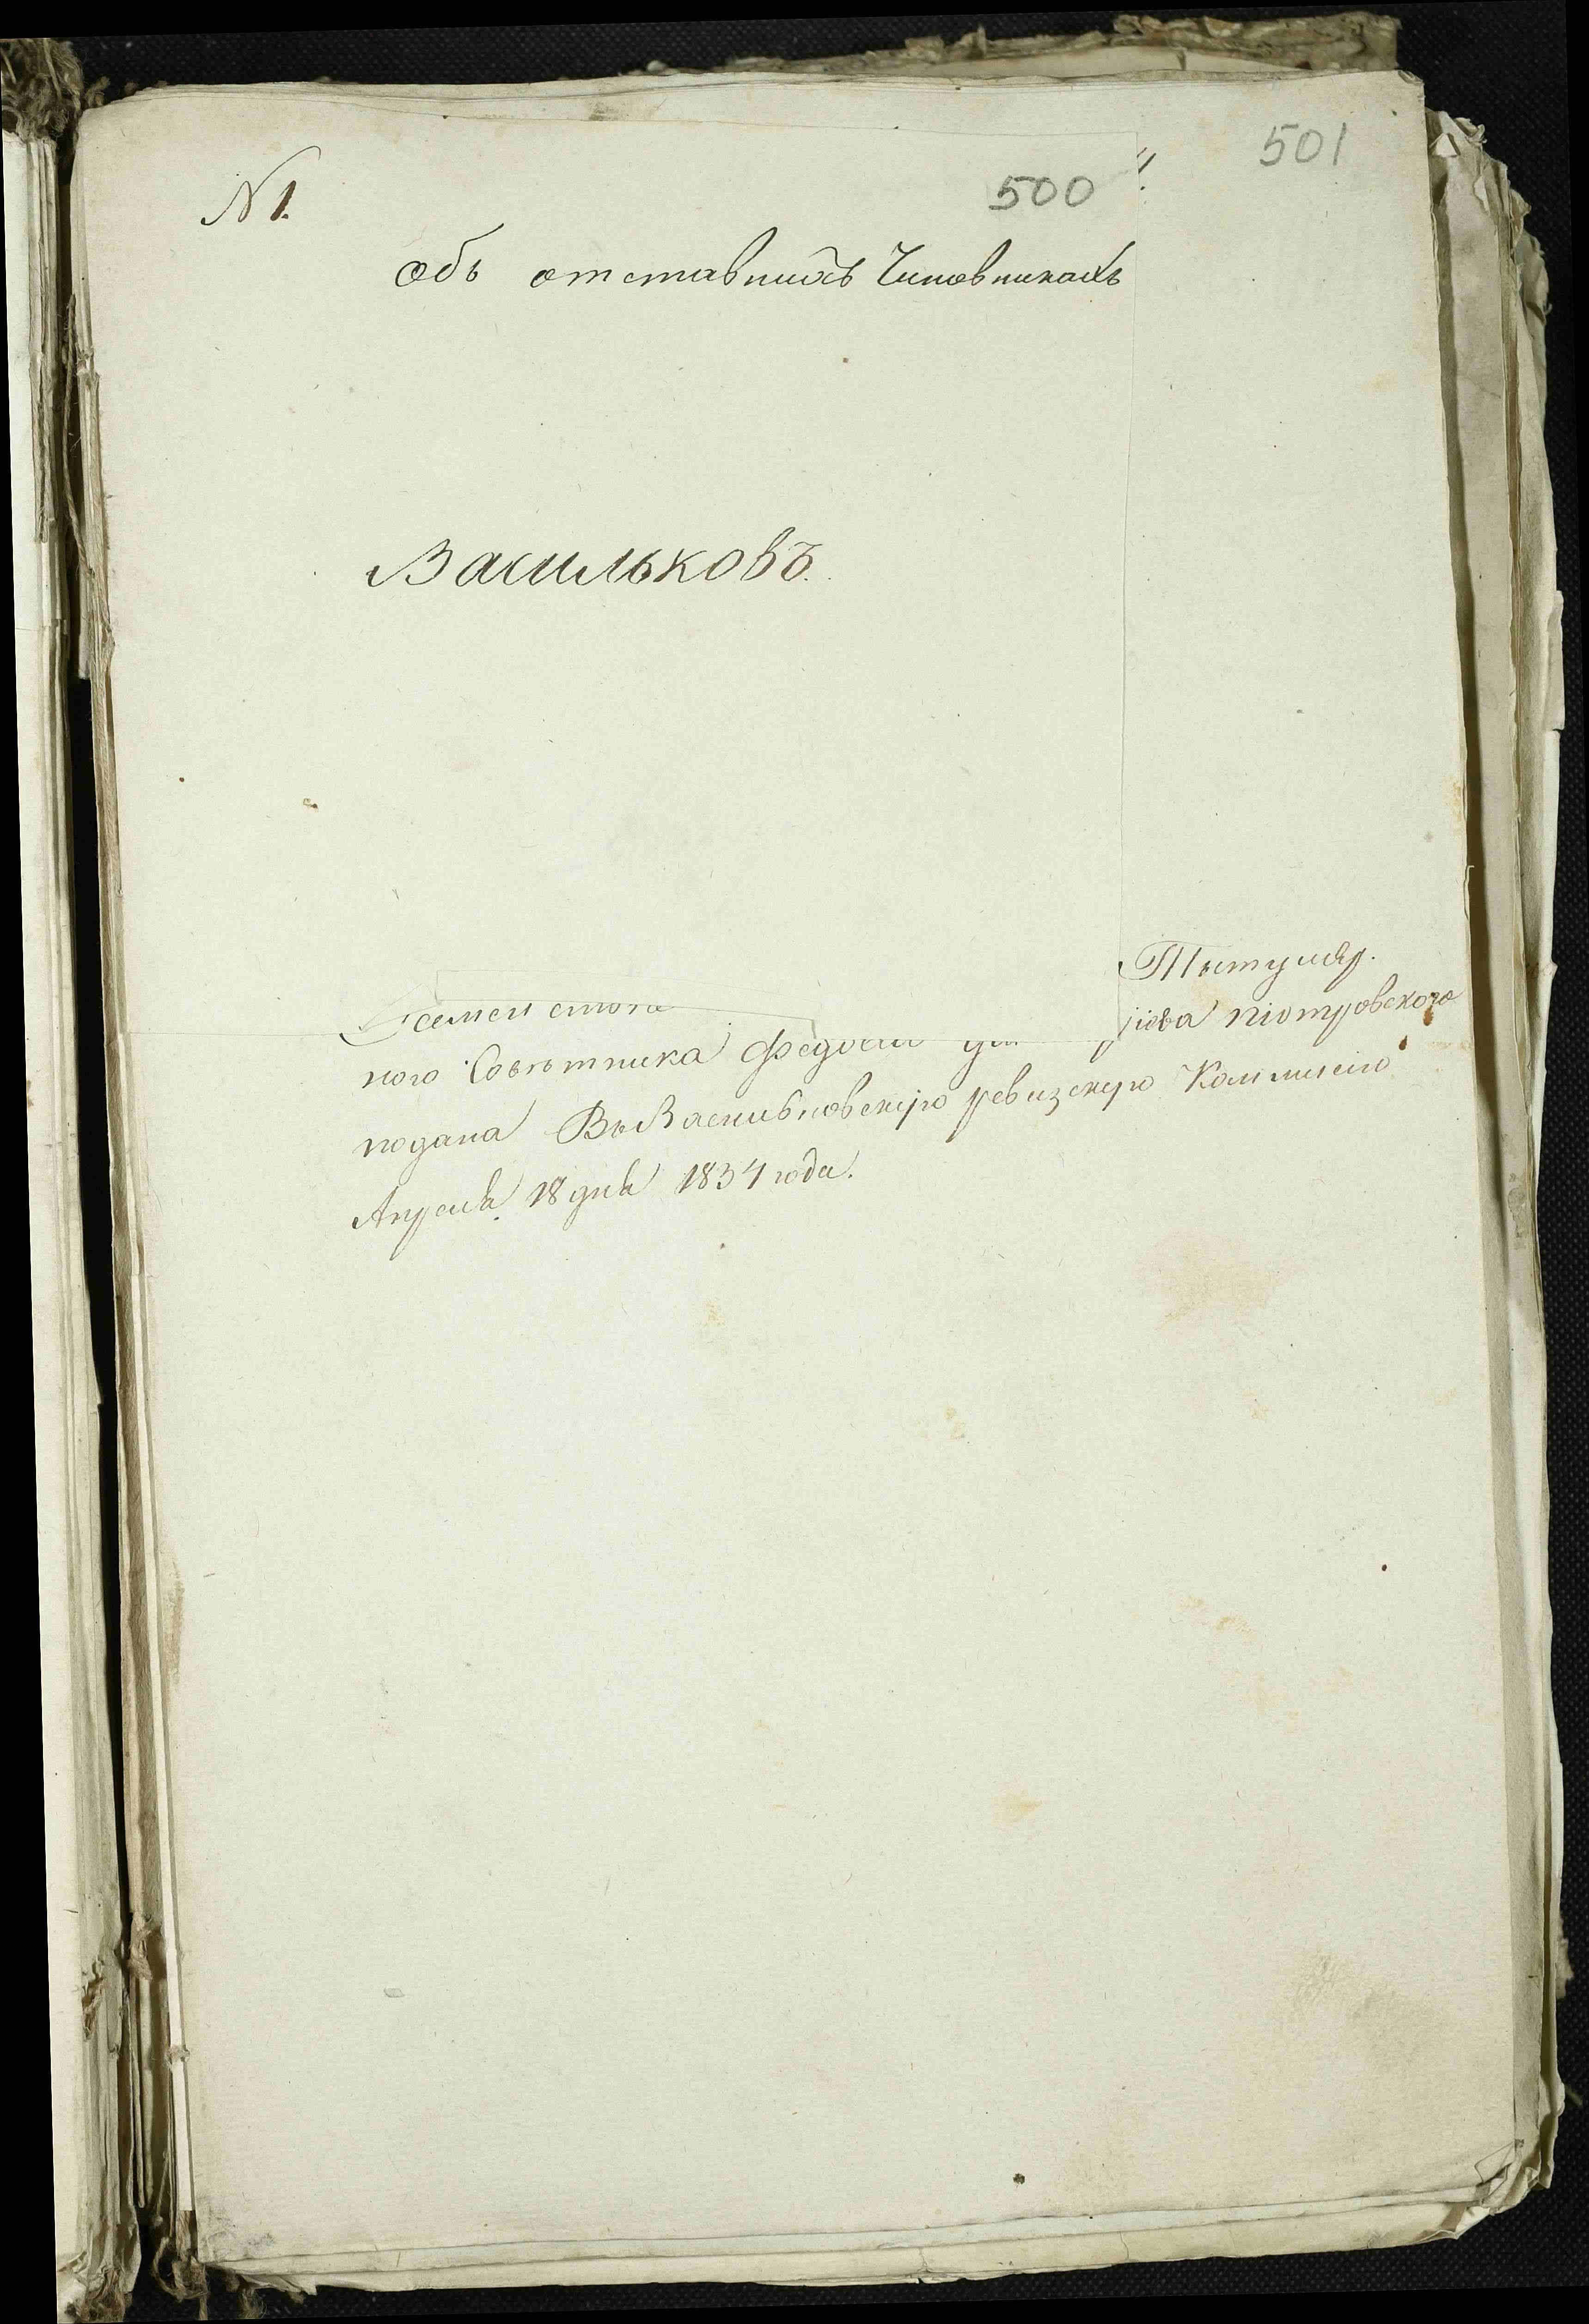 501
500
N 1.
Объ отставныхъ Чиновникахъ
Васильковъ.
Титуляр.
ного Совѣтника Піотровского
подана Въ Васильковскую ревизскую Коммисію
Апрѣля 18 дня 1834 года.